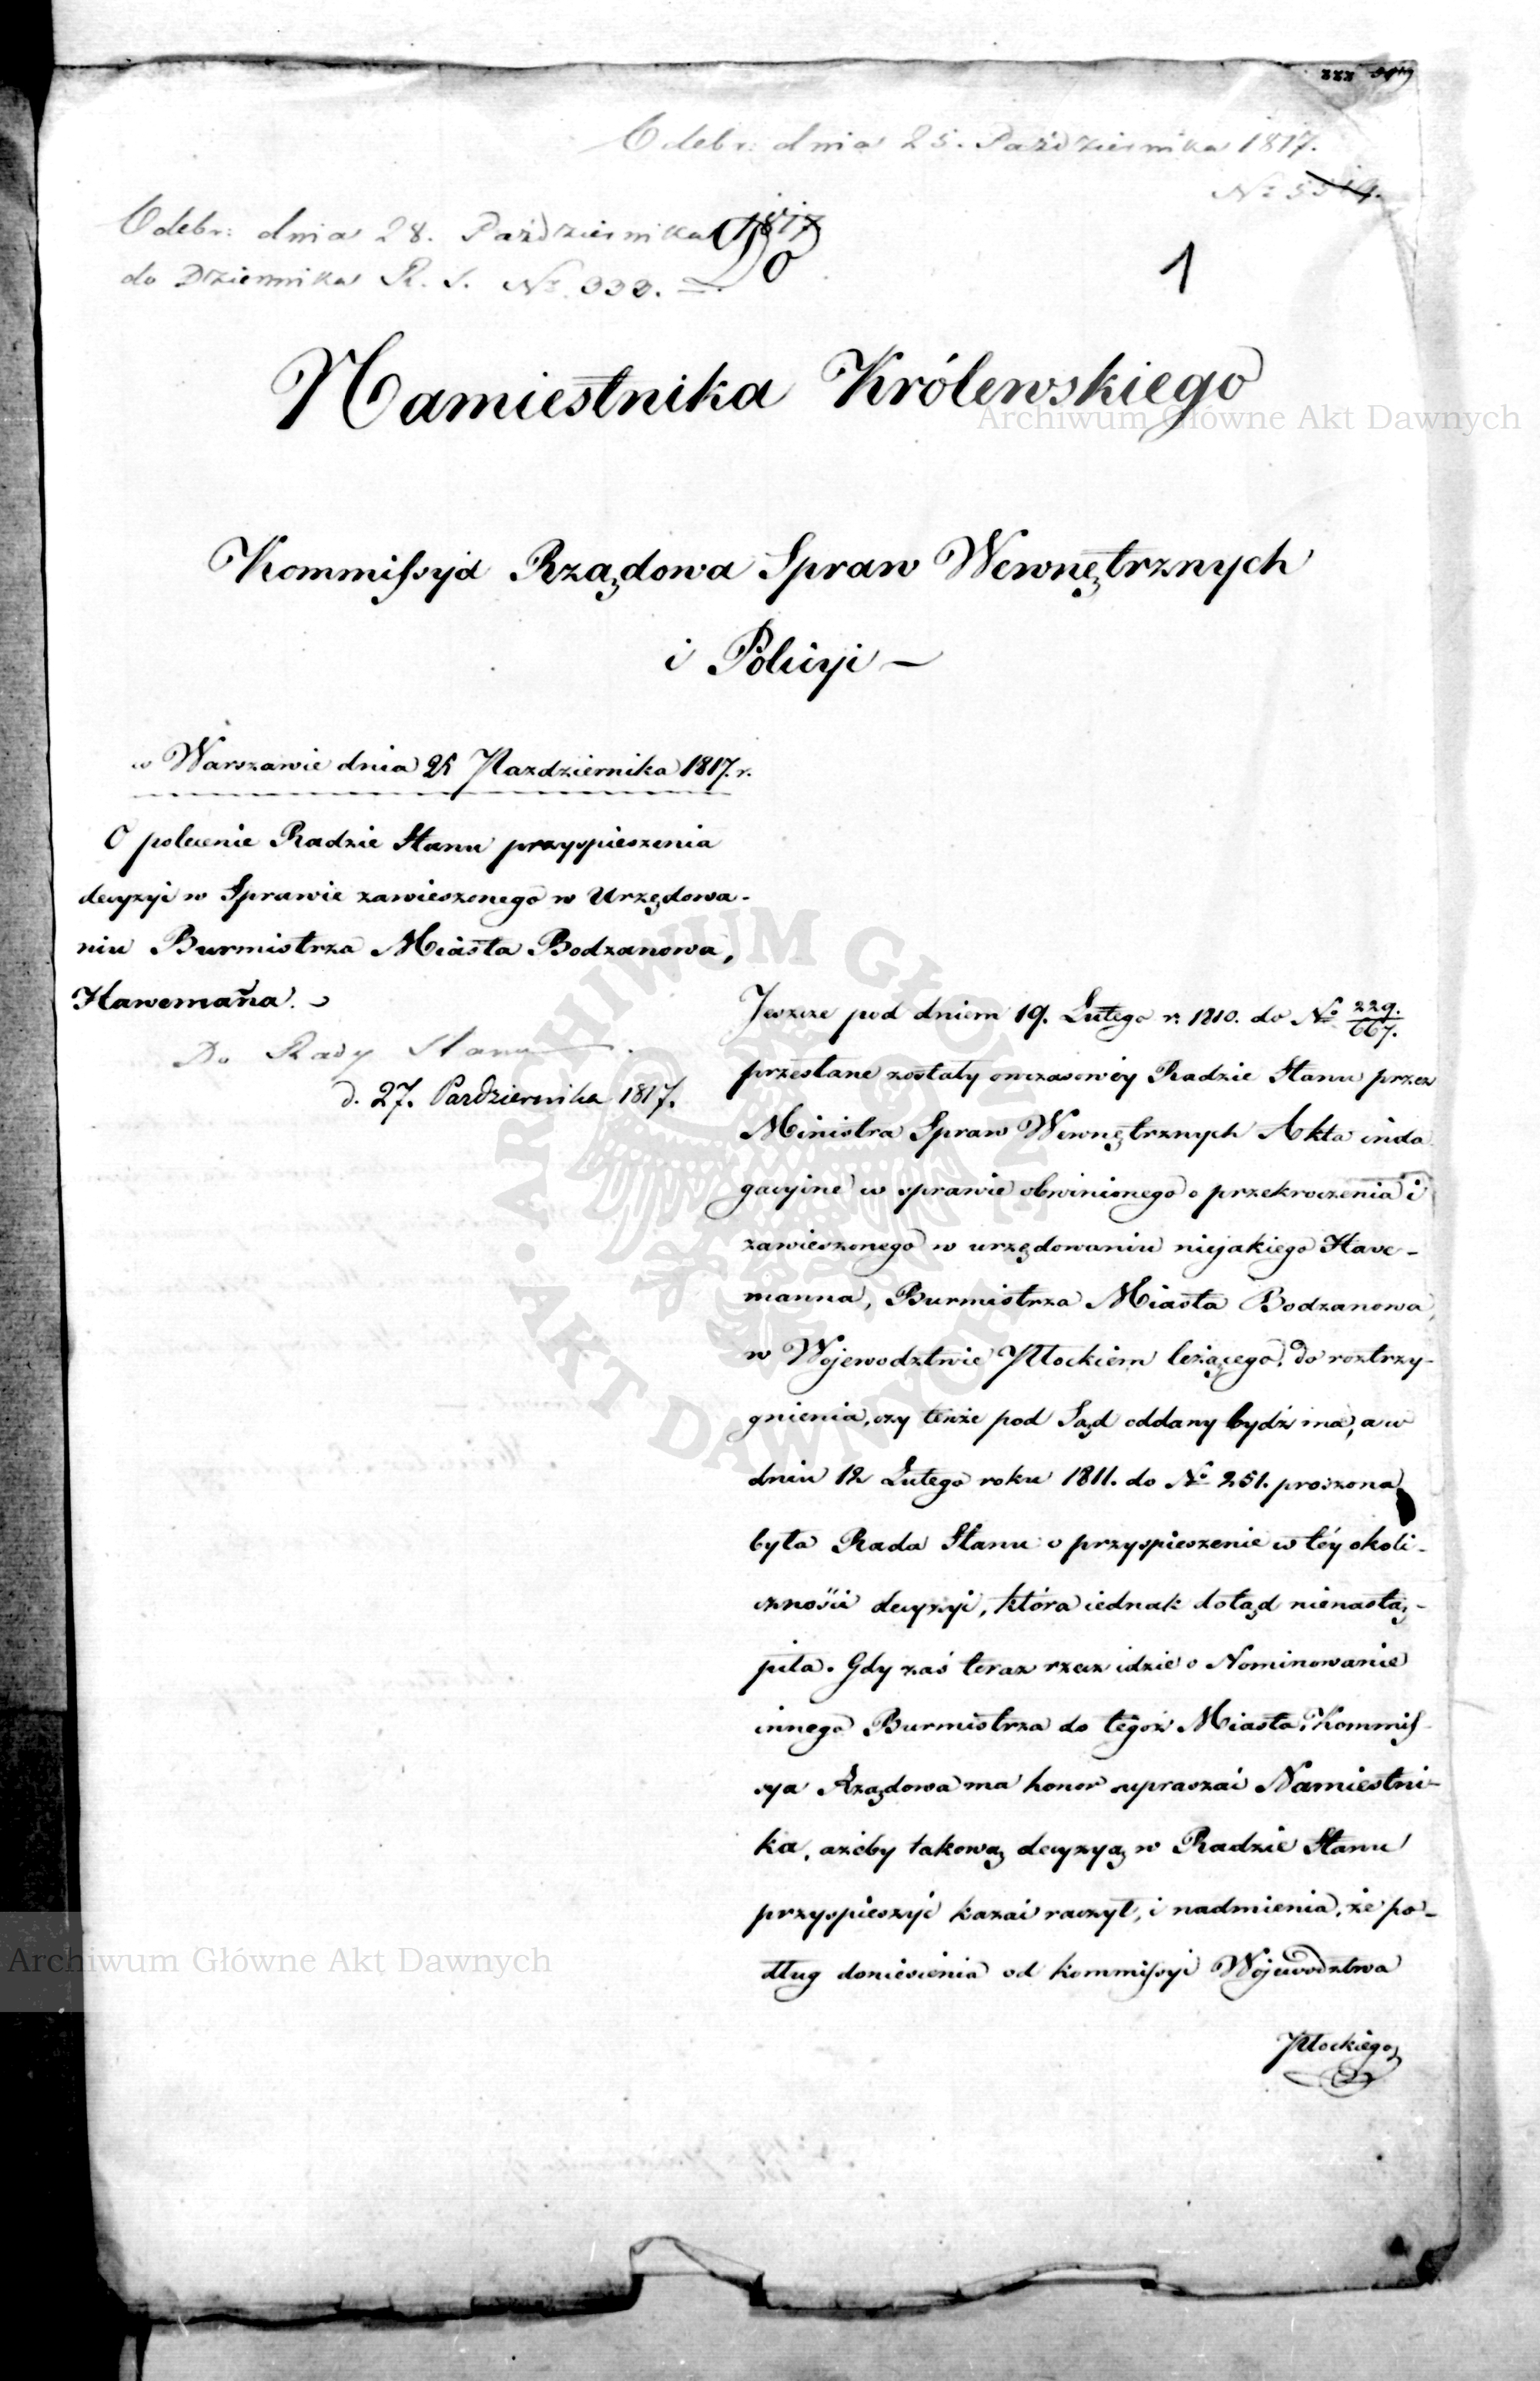 Odebr: dnia 25. Październikа 1817.
Odebr: dnia 28. Października 1817
do Dziennika R. S. No. 333.
Do
1
Namiestnika Królewskiego
Archiwum Główne Akt Dawnych
Kommissyia Rządowa Spraw Wewnętrznych
i Policyi —
w Warszawie dnia 25 Pazdziernika 1817. r.
O polecenie Radzie Stanu przyspieszenia
decyzyi w Sprawie zawieszonego w Urzędowa-
niu Burmistrza Miasta Bodzanowa,
Hawemaña.
Do Rady Stanu
d. 27. Pazdziernika 1817.
Jeszcze pod dniem 19. Lutego r. 1810. do No 229./667.
przesłane zostały owczasowéy Radzie Stanu przez
Ministra Spraw Wewnętrznych Akta inda
gacyine w sprawie obwinionego o przekroczenia i
zawieszonego w urzędowaniu niejakiego Have-
manna, Burmistrza Miasta Bodzanowa,
w Wojewodztwie Płockiem leżącego, do roztrzy-
gnienia, czy tenże pod Sąd oddany bydź ma, a w
dniu 12 Lutego roku 1811. do No 251. proszona
była Rada Stanu o przyspieszenie w téy okoli-
cznośći decyzyi, która iednak dotąd nienastą-
piła. Gdy zaś teraz rzecz idzie o Nominowanie
innego Burmistrza do tegoż Miasta, Kommis-
sya Rządowa ma honor upraszać Namiestni-
ka, ażeby takową decyzyą w Radzie Stanu
przyspieszyć kazać raczył, i nadmienia, że po-
dług doniesienia od kommissyi Wojewodztwa
Płockiego,
ARCHIWUM GŁÓWNE AKT DAWNYCH
Archiwum Główne Akt Dawnych